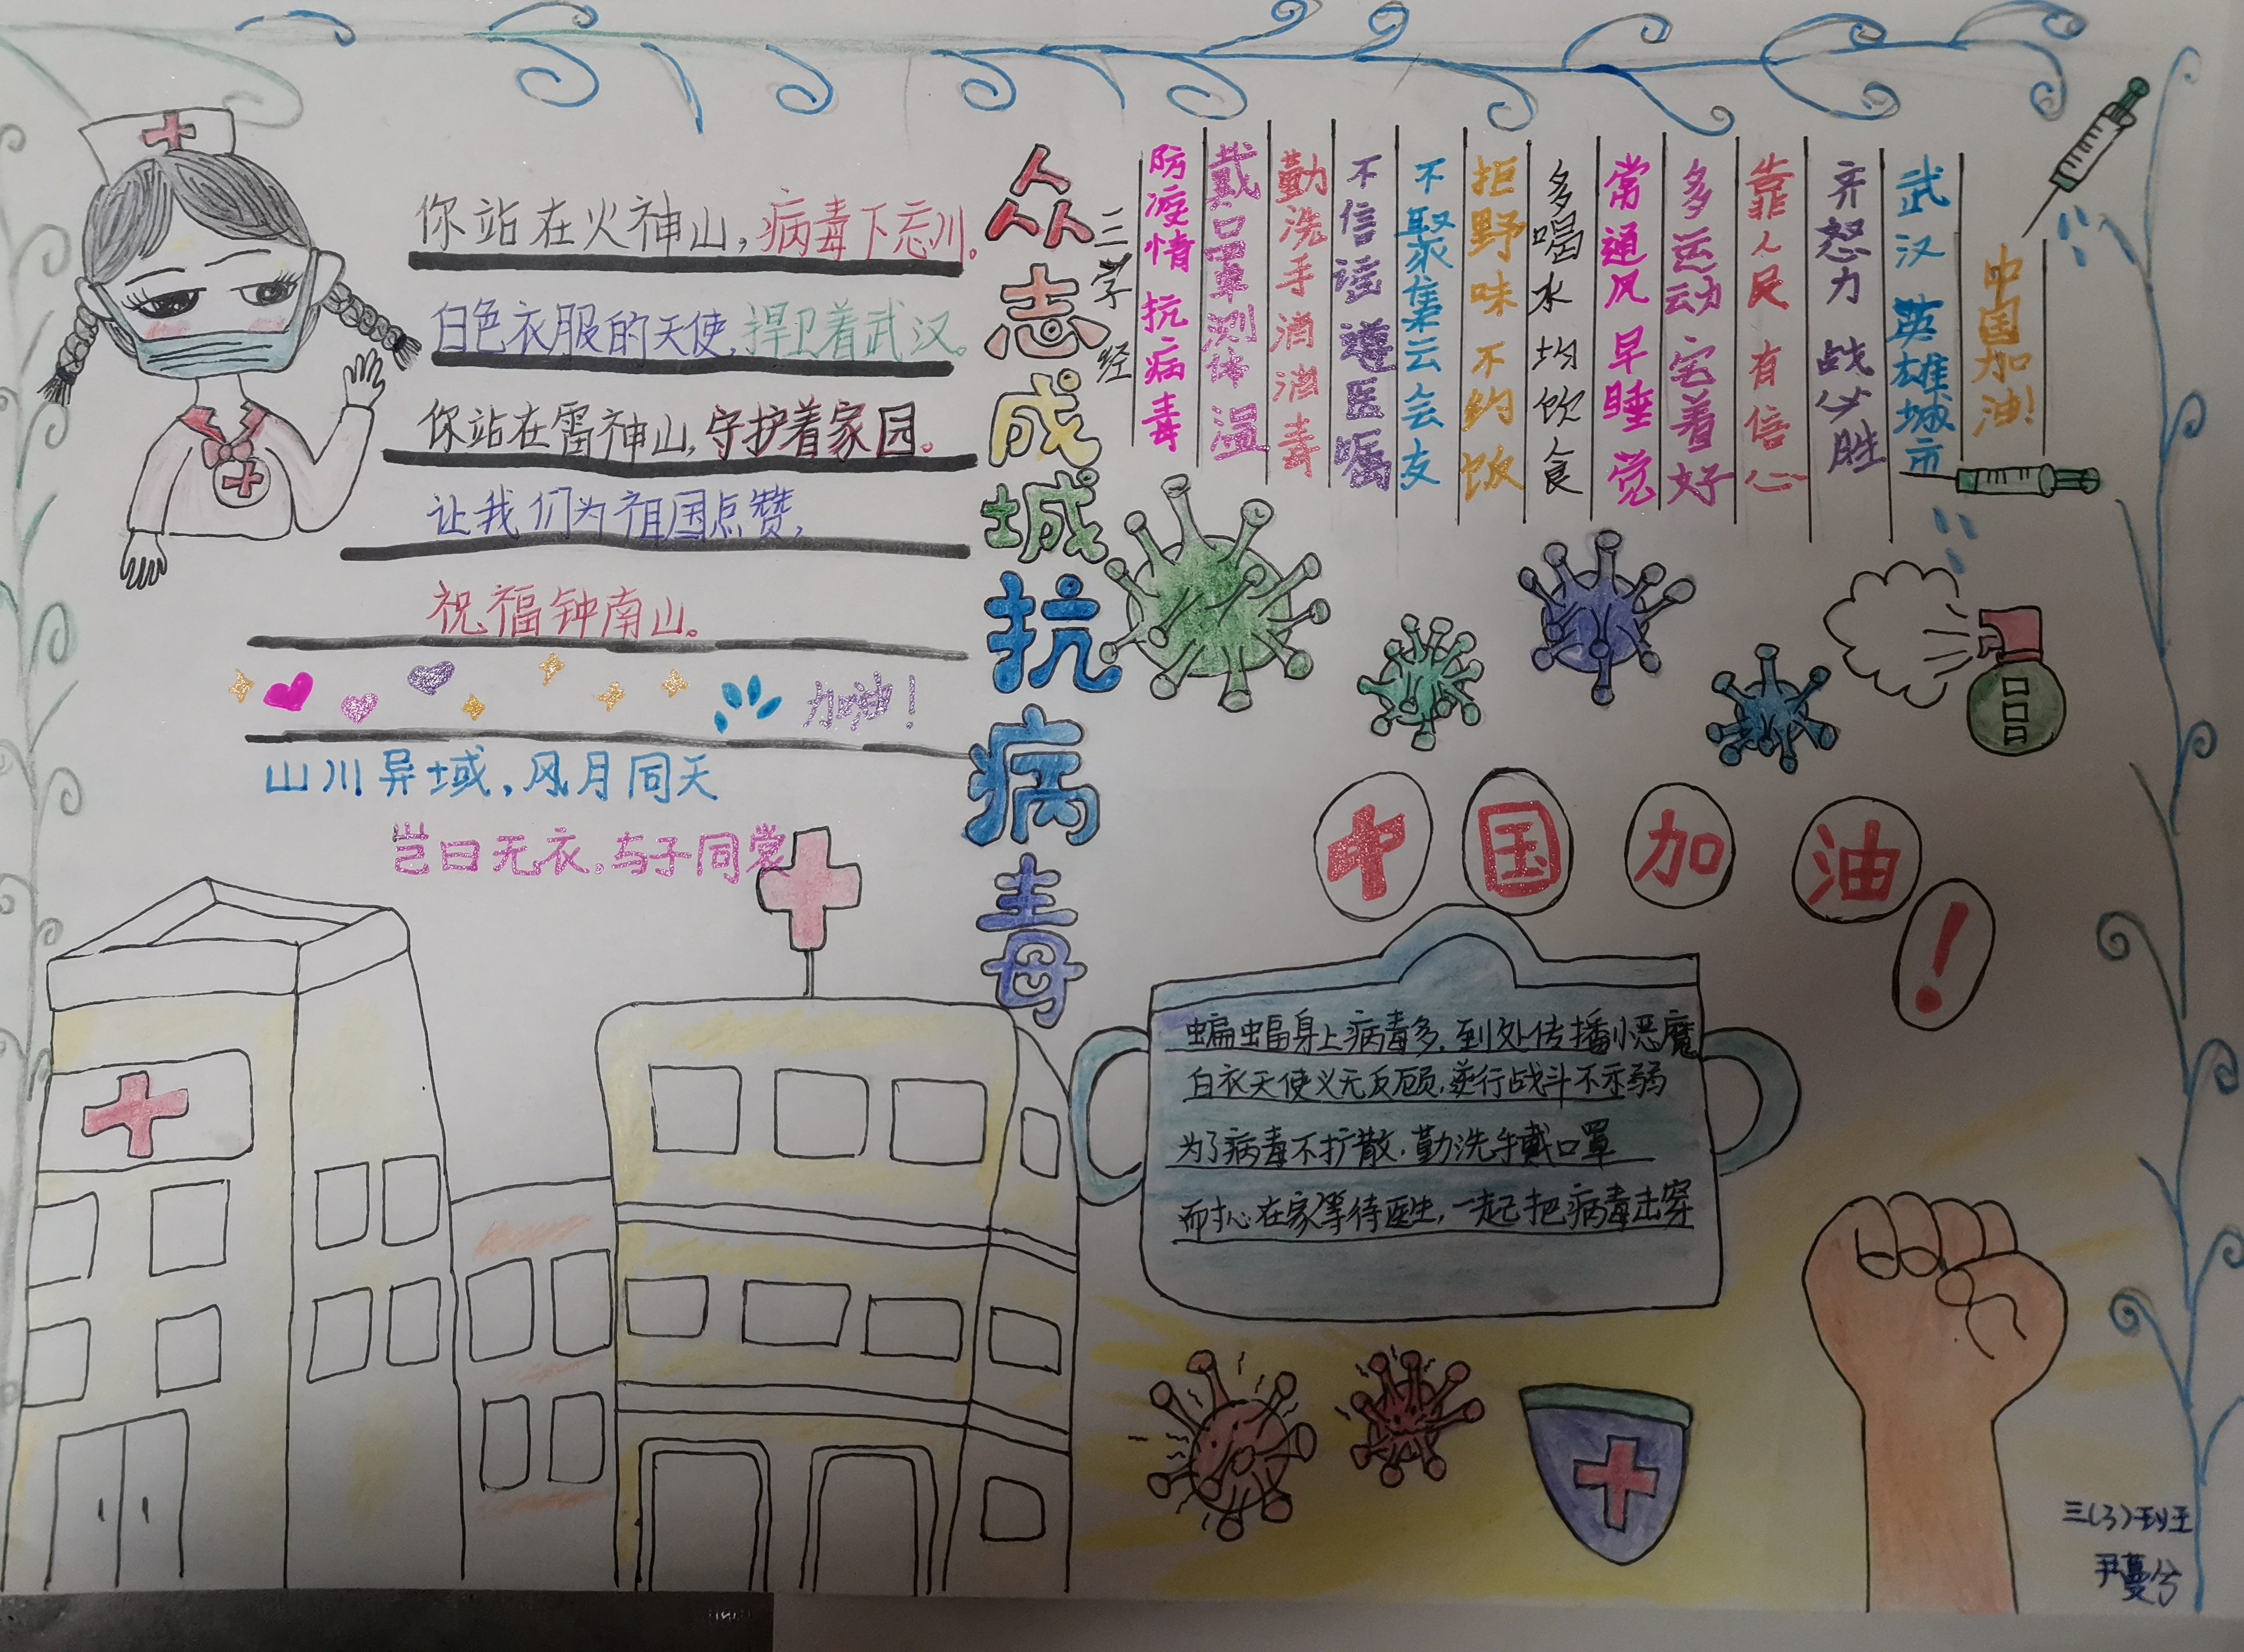 你站在火神山，病毒下忘川。
白色衣服的天使，捍卫着武汉。
你站在雷神山，守护着家园。
让我们为祖国点赞，
祝福钟南山。
加油！
山川异域，风月同天
岂曰无衣，与子同裳
众志成城抗病毒
三字经
防疫情 抗病毒
戴口罩 测体温
勤洗手 消消毒
不信谣 遵医嘱
不聚集 云会友
拒野味 不约饭
多喝水 均饮食
常通风 早睡觉
多运动 宅着好
靠人民 有信心
齐怒力 战必胜
武汉 英雄城市
中国加油！
中国加油！
蝙蝠身上病毒多，到处传播小恶魔
白衣天使义无反顾，逆行战斗不示弱
为了病毒不扩散，勤洗手戴口罩
而扌心在家等待医生，一起把病毒击穿
三（3）班
尹蔓兮